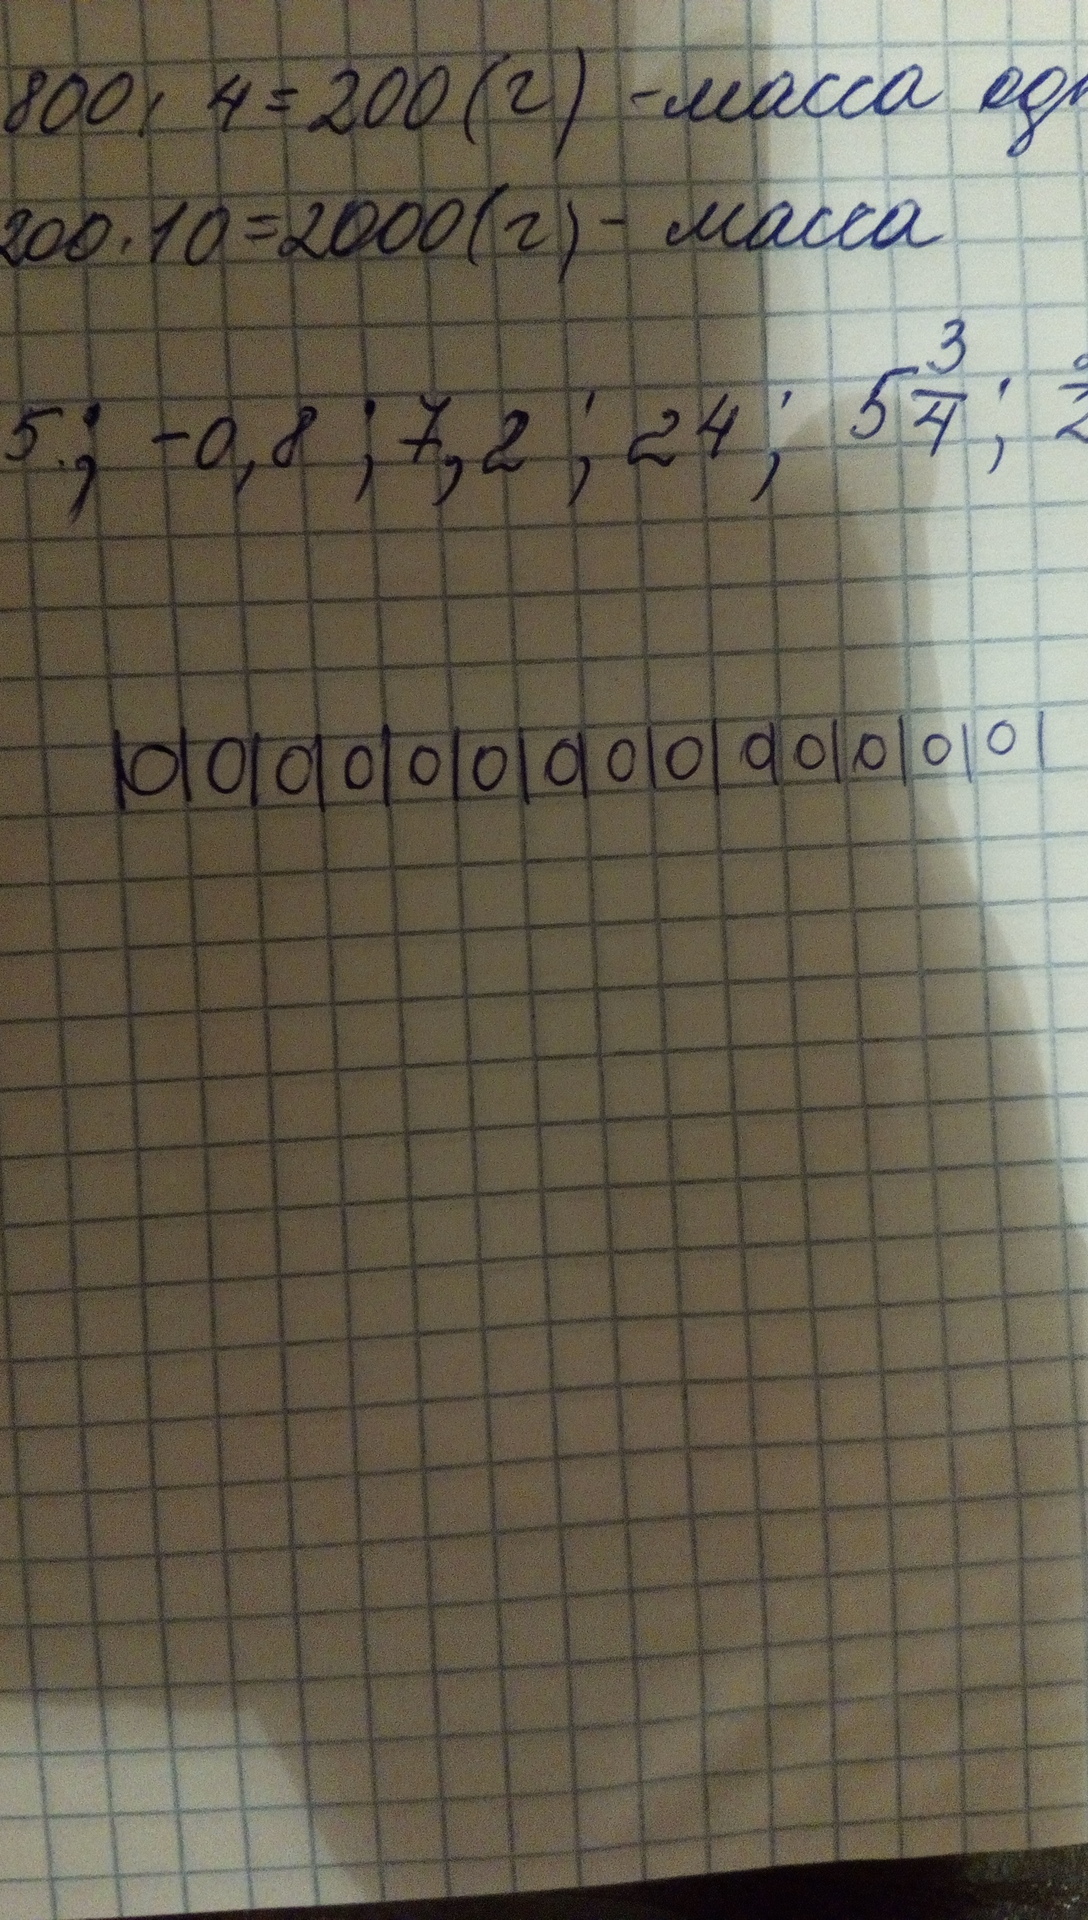 800: 4=200(г) -масса одн
200·10=2000(г)- масса
5; -0,8; 7,2; 24; 5 3/4;
|0|0|0|0|0|0|0|0|0|0|0|0|0|0|